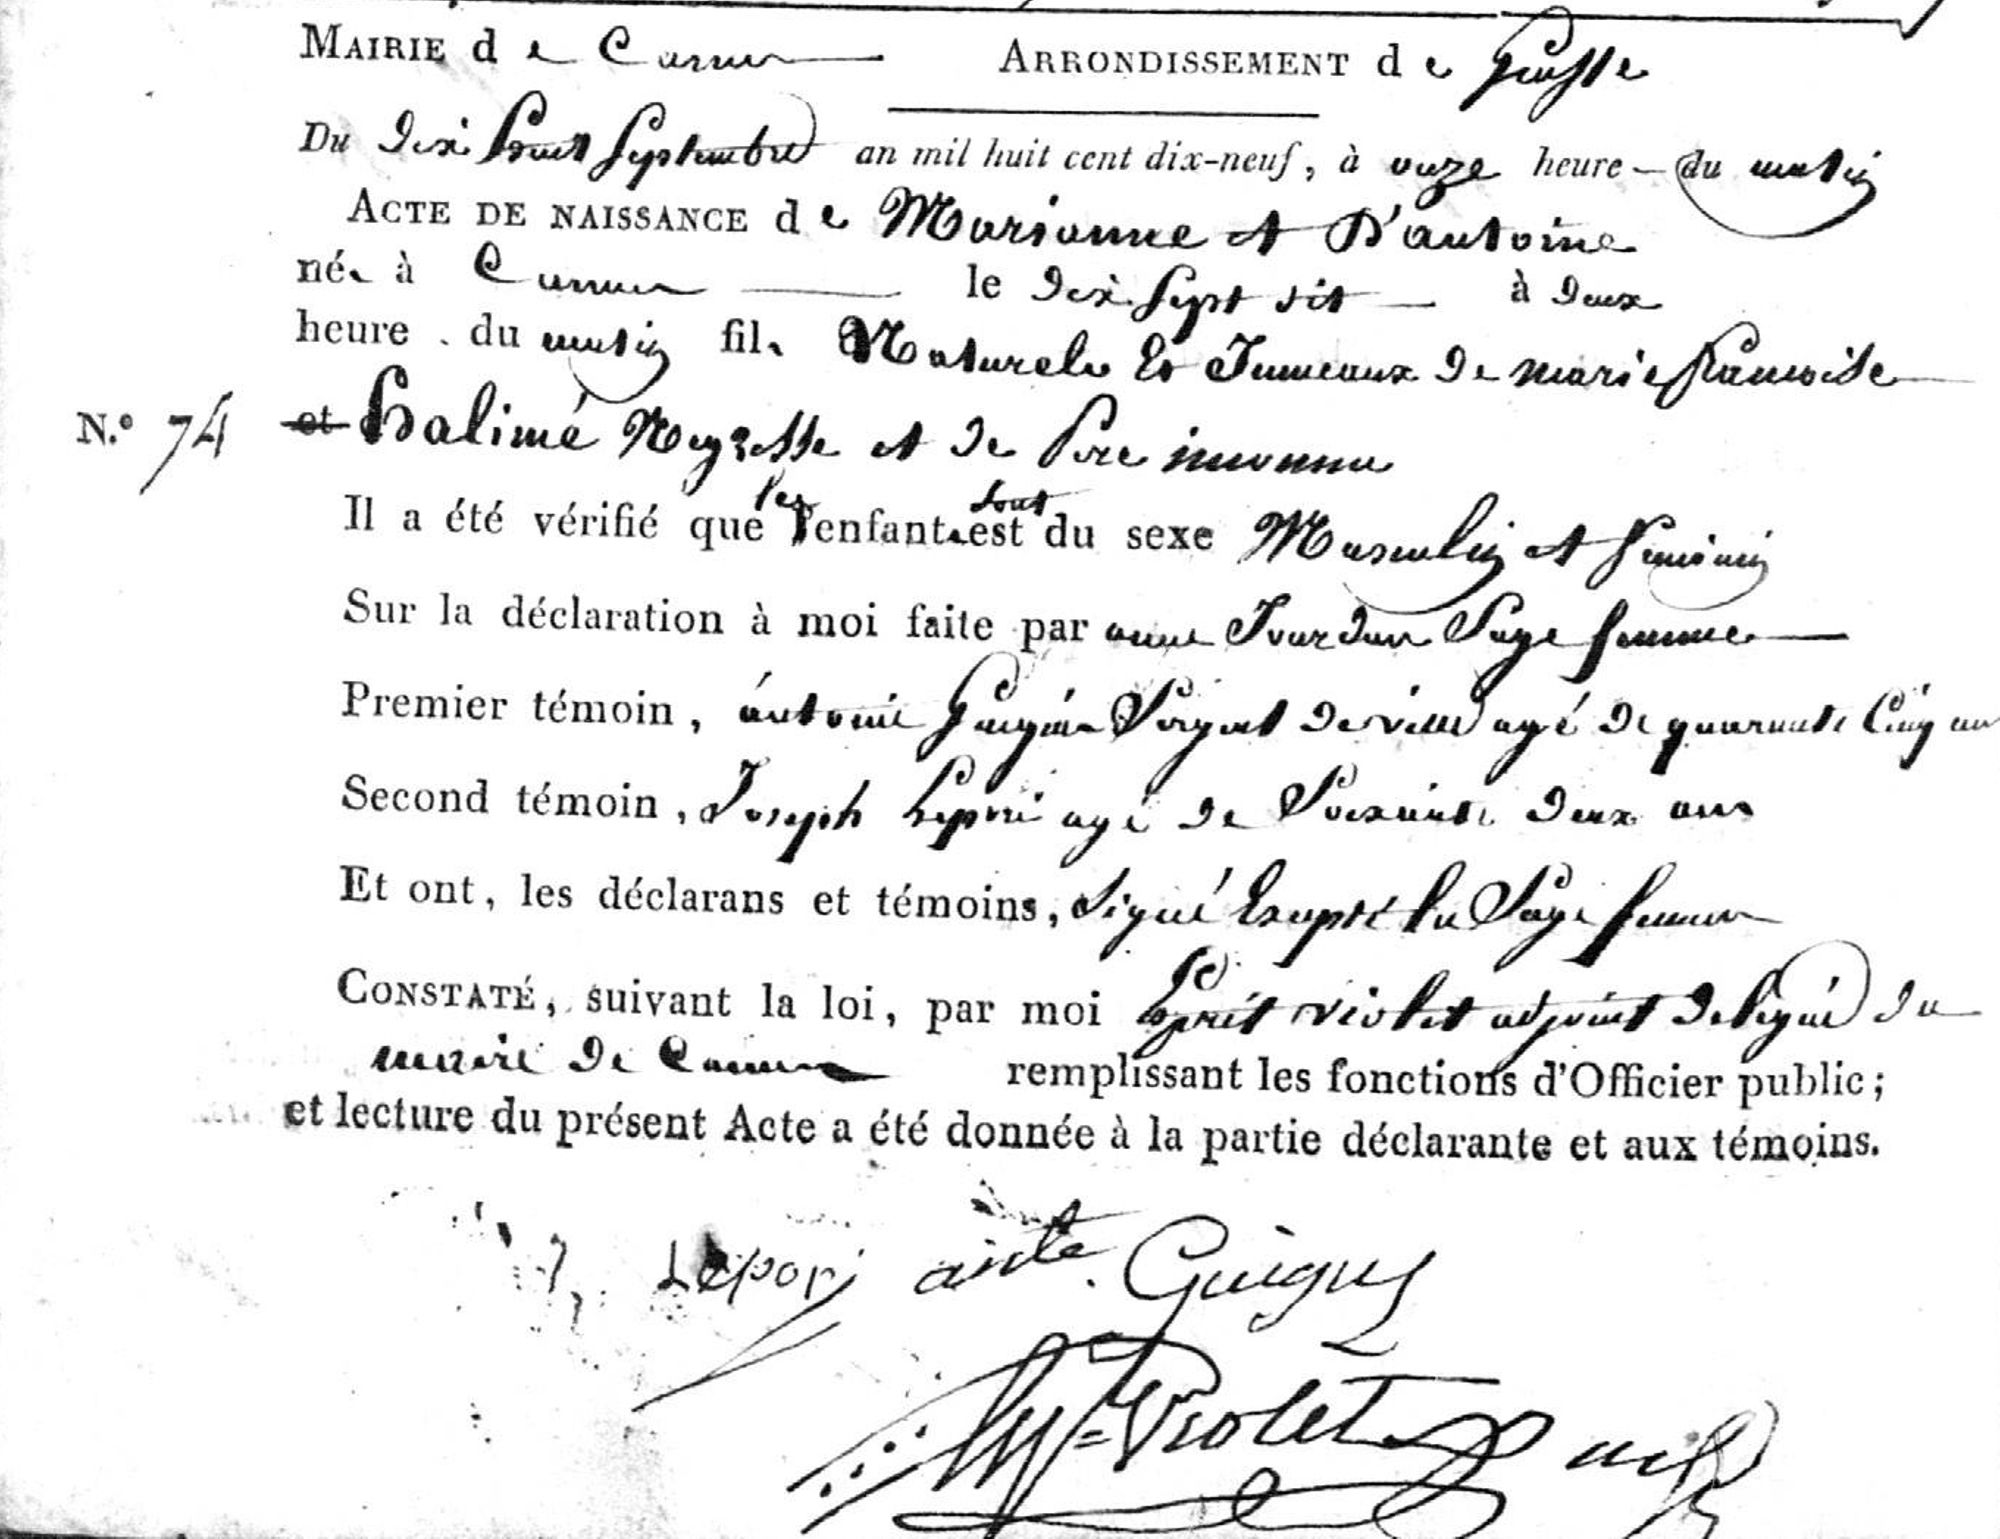 MAIRIE de Cannes ARRONDISSEMENT de Grasse
Du dix huit Septembre an mil huit cent dix-neuf, à onze heure du matin
ACTE DE NAISSANCE de Marianne et D'antoine
né à Cannes le dix sept dit à deux
heure du matin fil Naturels Et Jumeaux de marie francoise
N.° 74 et halimé Negresse et de Pere inconnu
les sont
Il a été vérifié que l'enfant est du sexe Masculin et feminin
Sur la déclaration à moi faite par anne Jourdan Sage femme
Premier témoin, antoine Guigue Sergent de ville agé de quarante Cinq ans
Second témoin, Joseph Lepori agé de Soixante deux ans
Et ont, les déclarans et témoins, Signé Excepté la Sage femme
CONSTATÉ, suivant la loi, par moi Esprit violet adjoint delegué du
maire de Cannes remplissant les fonctions d'Officier public;
et lecture du présent Acte a été donnée à la partie déclarante et aux témoins.
Lepori ainte. Guigue
Violet